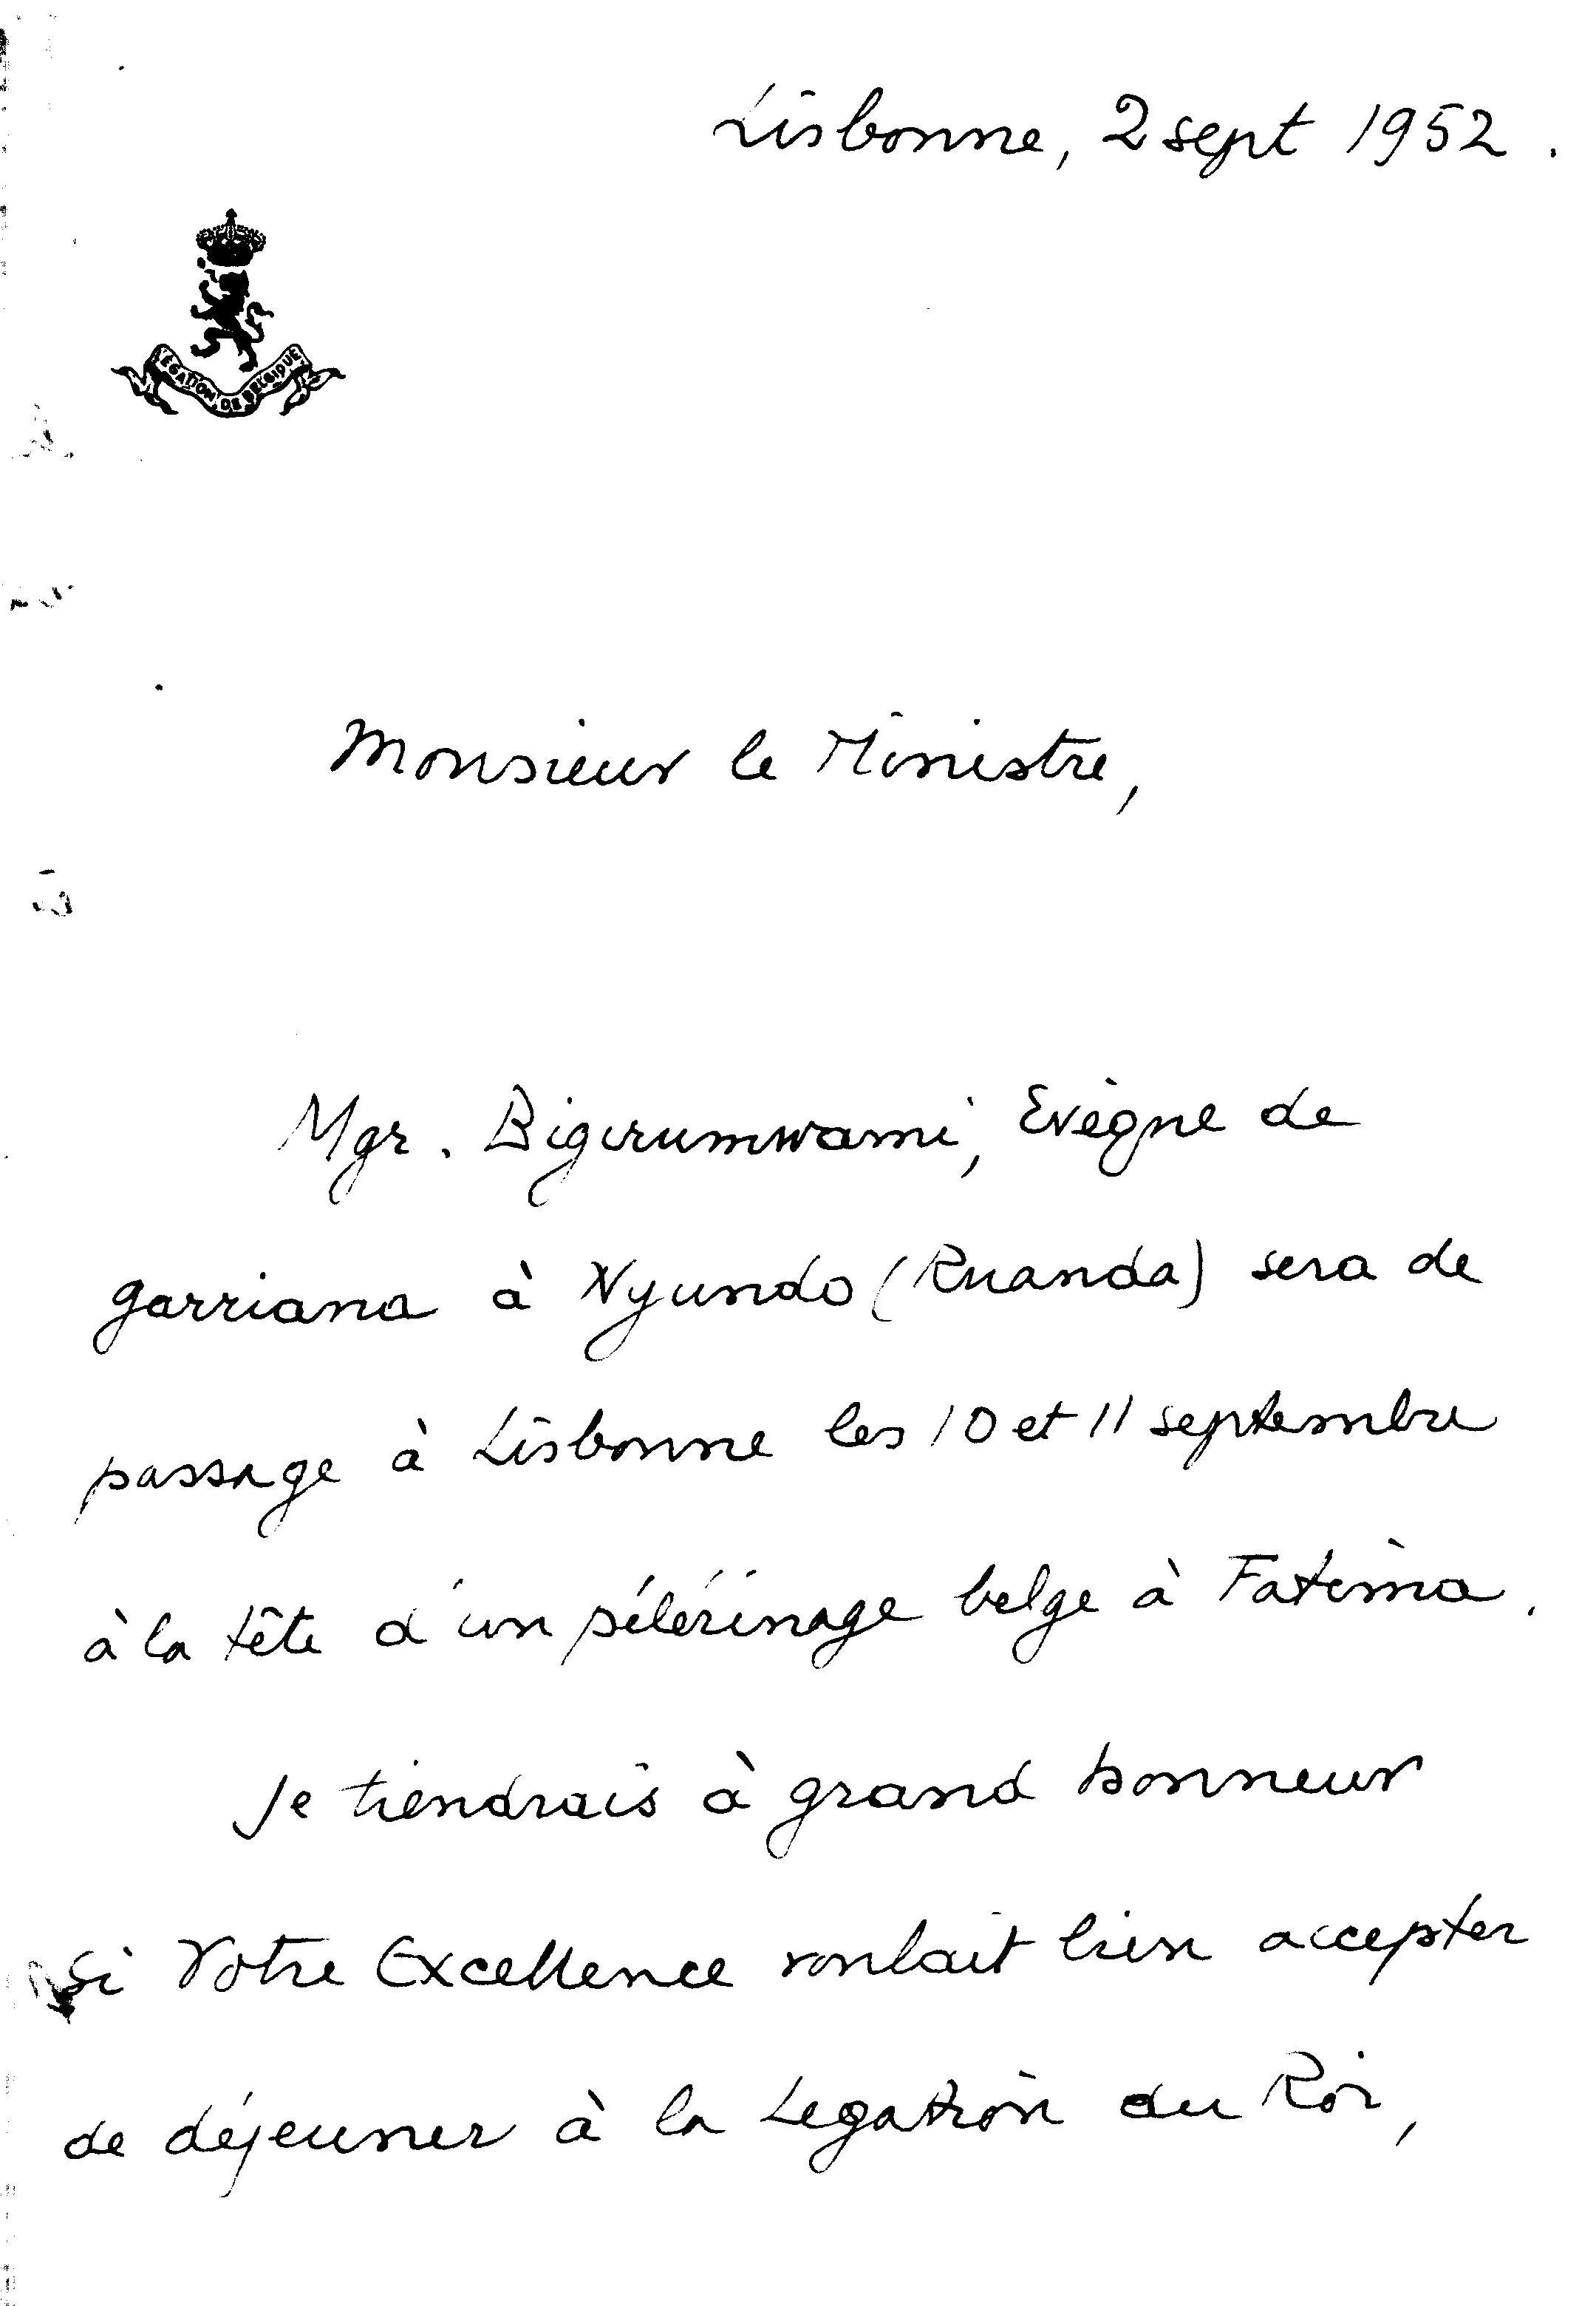 Lisbonne, 2 sept 1952.
LEGATION DE BELGIQUE
Monsieur le Ministre,
Mgr. Bigirumwami, Evêque de
garriana à Nyundo (Ruanda) sera de
passage à Lisbonne les 10 et 11 septembre
à la tête d'un pélérinage belge à Fatima.
Je tiendrais à grand honneur
si Votre Excellence voulait bien accepter
de déjeuner à la Legation du Roi,